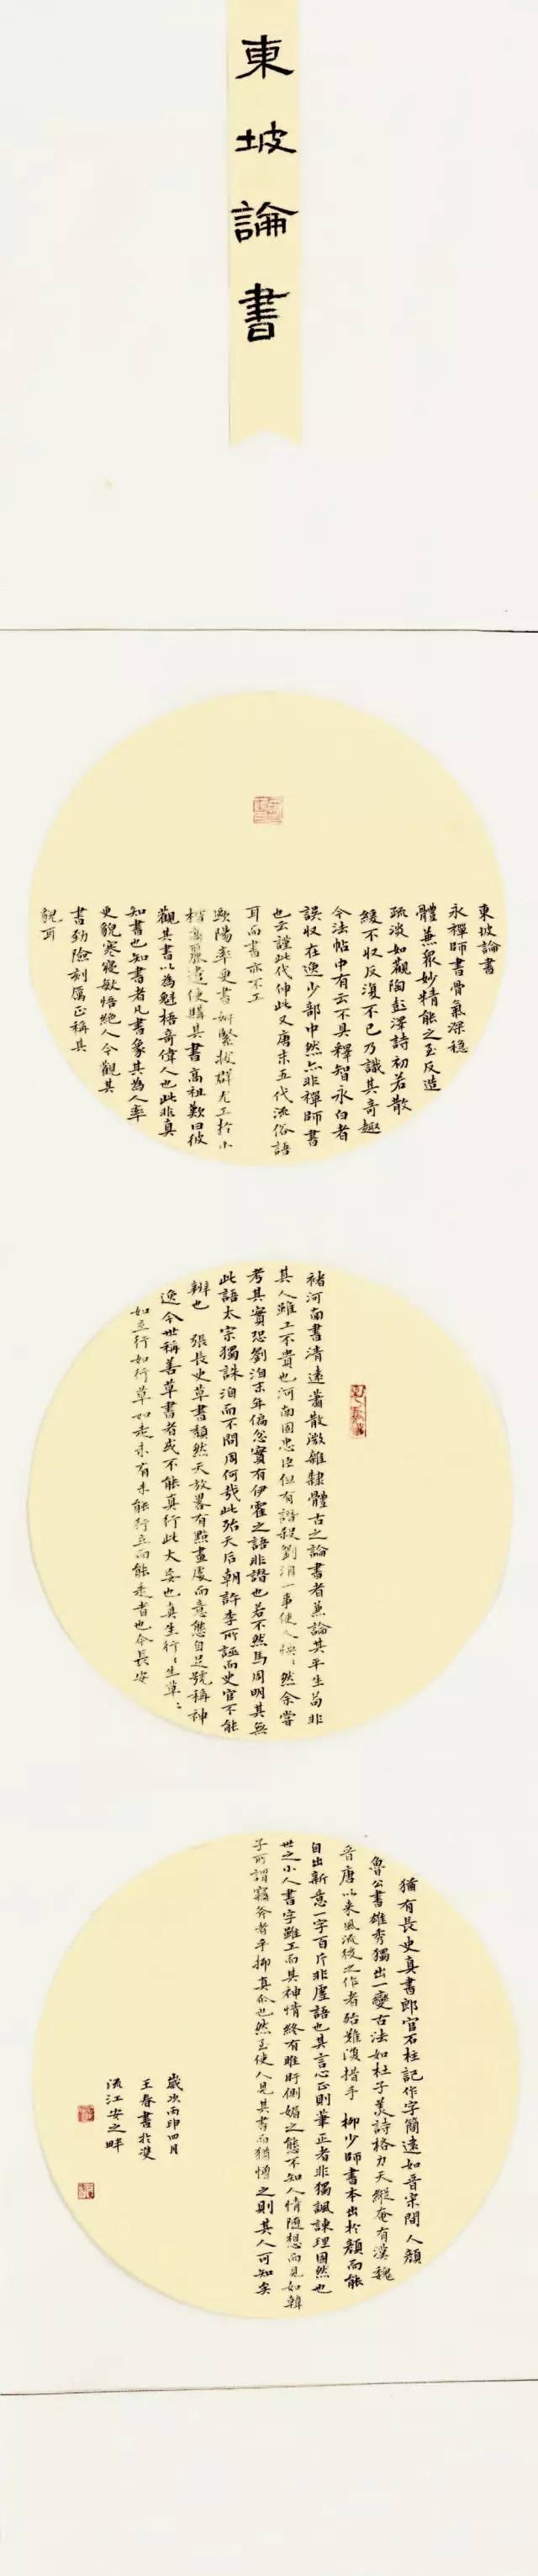 東坡論書
東坡論書
永禪師書骨氣深穩
體兼衆妙精能之至反造
疏淡如觀陶彭澤詩初若散
緩不収反復不已乃識其奇趣
今法帖中有云不具釋智永白者
誤収在逸少部中然亦非禪師書
也云謹此代伸此又唐末五代流俗語
耳而書亦不工
歐陽率更書妍緊拔群尤工於小
楷高麗遣使購其書高祖歎曰彼
觀其書以為魁梧奇偉人也此非真
知書也知書者凡書象其為人率
更貌寒寢敏悟絶人今觀其
書勁險刻厲正稱其
貌耳
褚河南書清遠蕭散微雜隸體古之論書者兼論其平生苟非
其人雖工不貴也河南固忠臣但有譖殺劉洎一事使人怏〻然余嘗
考其實恐劉洎末年偏忿實有伊霍之語非譖也若不然馬周明其無
此語太宗獨誅洎而不問周何哉此殆天后朝許李所誣而史官不能
辨也 張長史草書頹然天放畧有點畫處而意態自足號稱神
逸今世稱善草書者或不能真行此大妄也真生行〻生草〻
如立行如行草如走未有未能行立而能走者也今長安
猶有長史真書郎官石柱記作字簡遠如晉宋間人顏
魯公書雄秀獨出一變古法如杜子美詩格力天縱奄有漢魏
晉唐以來風流後之作者殆難復措手 柳少師書本出於顏而能
自出新意一字百斤非虛語也其言心正則筆正者非獨諷諫理固然也
世之小人書字雖工而其神情終有睢盱側媚之態不知人情隨想而見如韓
子所謂竊斧者乎抑真爾也然至使人見其書而猶憎之則其人可知矣
歲次丙申四月
王春書於雙
流江安之畔